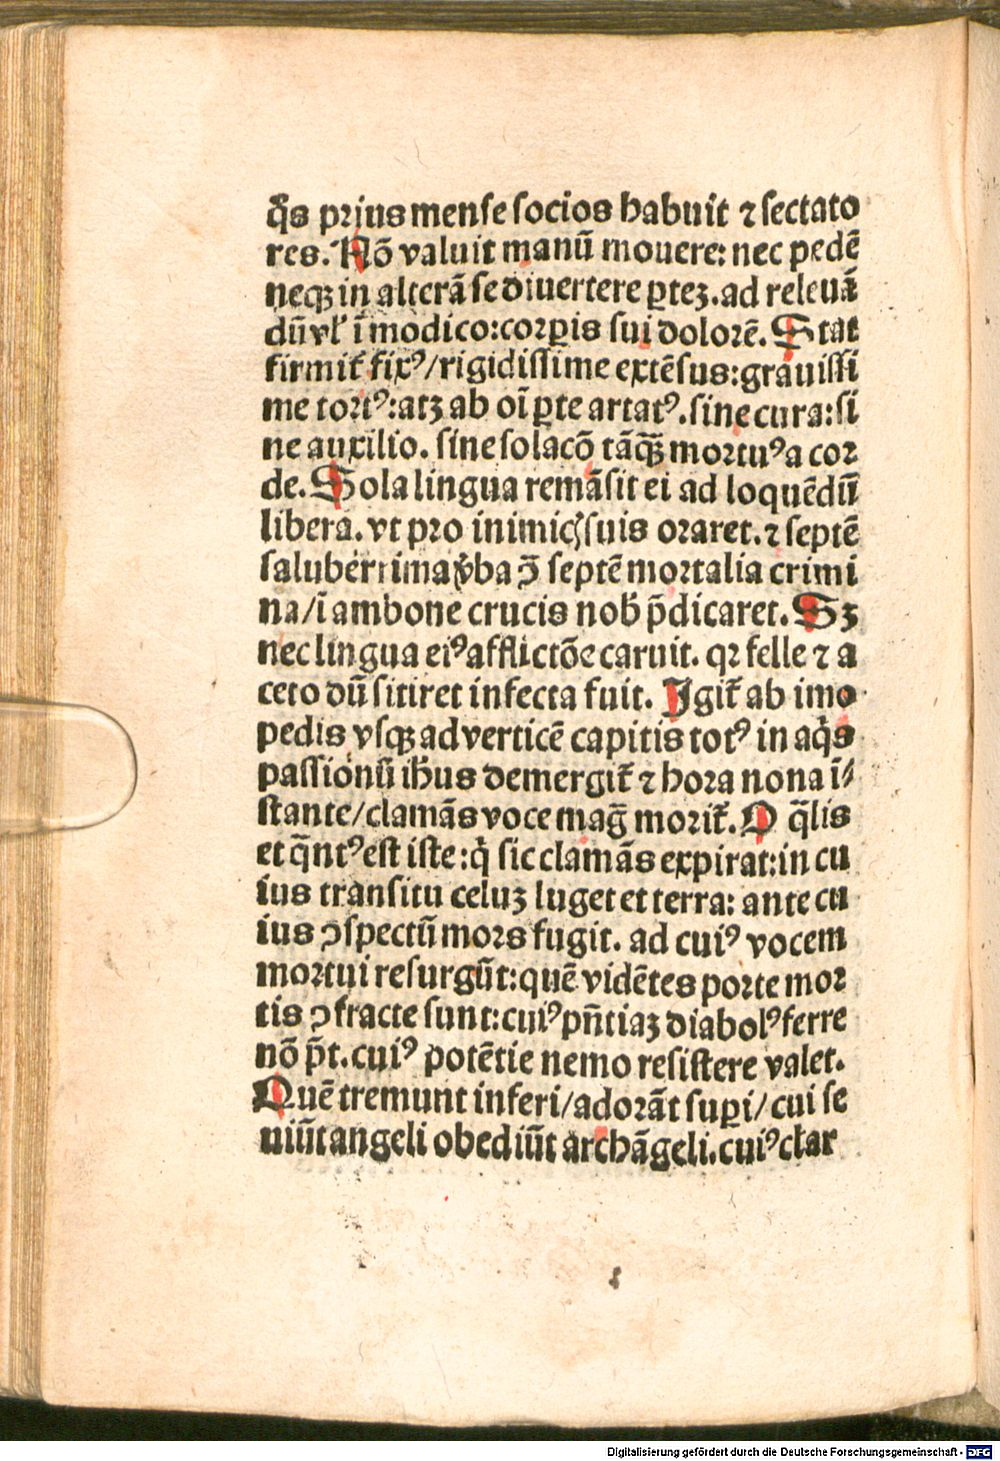 q̊s prius mense socios habuit ⁊ sectato
res. Nō valuit manū mouere: nec pedē
neqꝫ in alterā se diuertere ꝑteꝫ. ad releuā
dū vl' ī modico: corꝑis sui dolorē. Stat
firmit' fixꝰ/ rigidissime extēsus: grauissi
me tortꝰ: atꝫ ab oī ꝑte artatꝰ. sine cura: si
ne auxilio. sine solacō tāqꝫ̄ mortuꝰ a cor
de. Sola lingua remāsit ei ad loquēdū
libera. vt pro inimicꝭ suis oraret. ⁊ septē
saluberrima v̓ba ↄ̄ septē mortalia crimi
na/ ī ambone crucis nob̓ p̄dicaret. Sꝫ
nec lingua eiꝰ afflictōe caruit. qꝛ felle ⁊ a
ceto dū sitiret infecta fuit. Igit' ab imo
pedis vsqꝫ ad verticē capitis totꝰ in aq̊s
passionū ih̄us demergit' ⁊ hora nona ī⸗
stante/ clamās voce maḡ morit'. O q̄lis
et q̄ntꝰ est iste: q̇ sic clamās expirat: in cu
ius transitu celuꝫ luget et terra: ante cu
ius ↄspectū mors fugit. ad cuiꝰ vocem
mortui resurgūt: quē vidētes porte mor
tis ↄfracte sunt: cuiꝰ pn̄tiaꝫ diabolꝰ ferre
nō p̄t. cuiꝰ potētie nemo resistere valet.
Quē tremunt inferi/ adorāt suꝑi/ cui se
uiūt angeli obediūt archāgeli. cuiꝰ clar
Digitalisierung gefördert durch die Deutsche Forschungsgemeinschaft - DFG